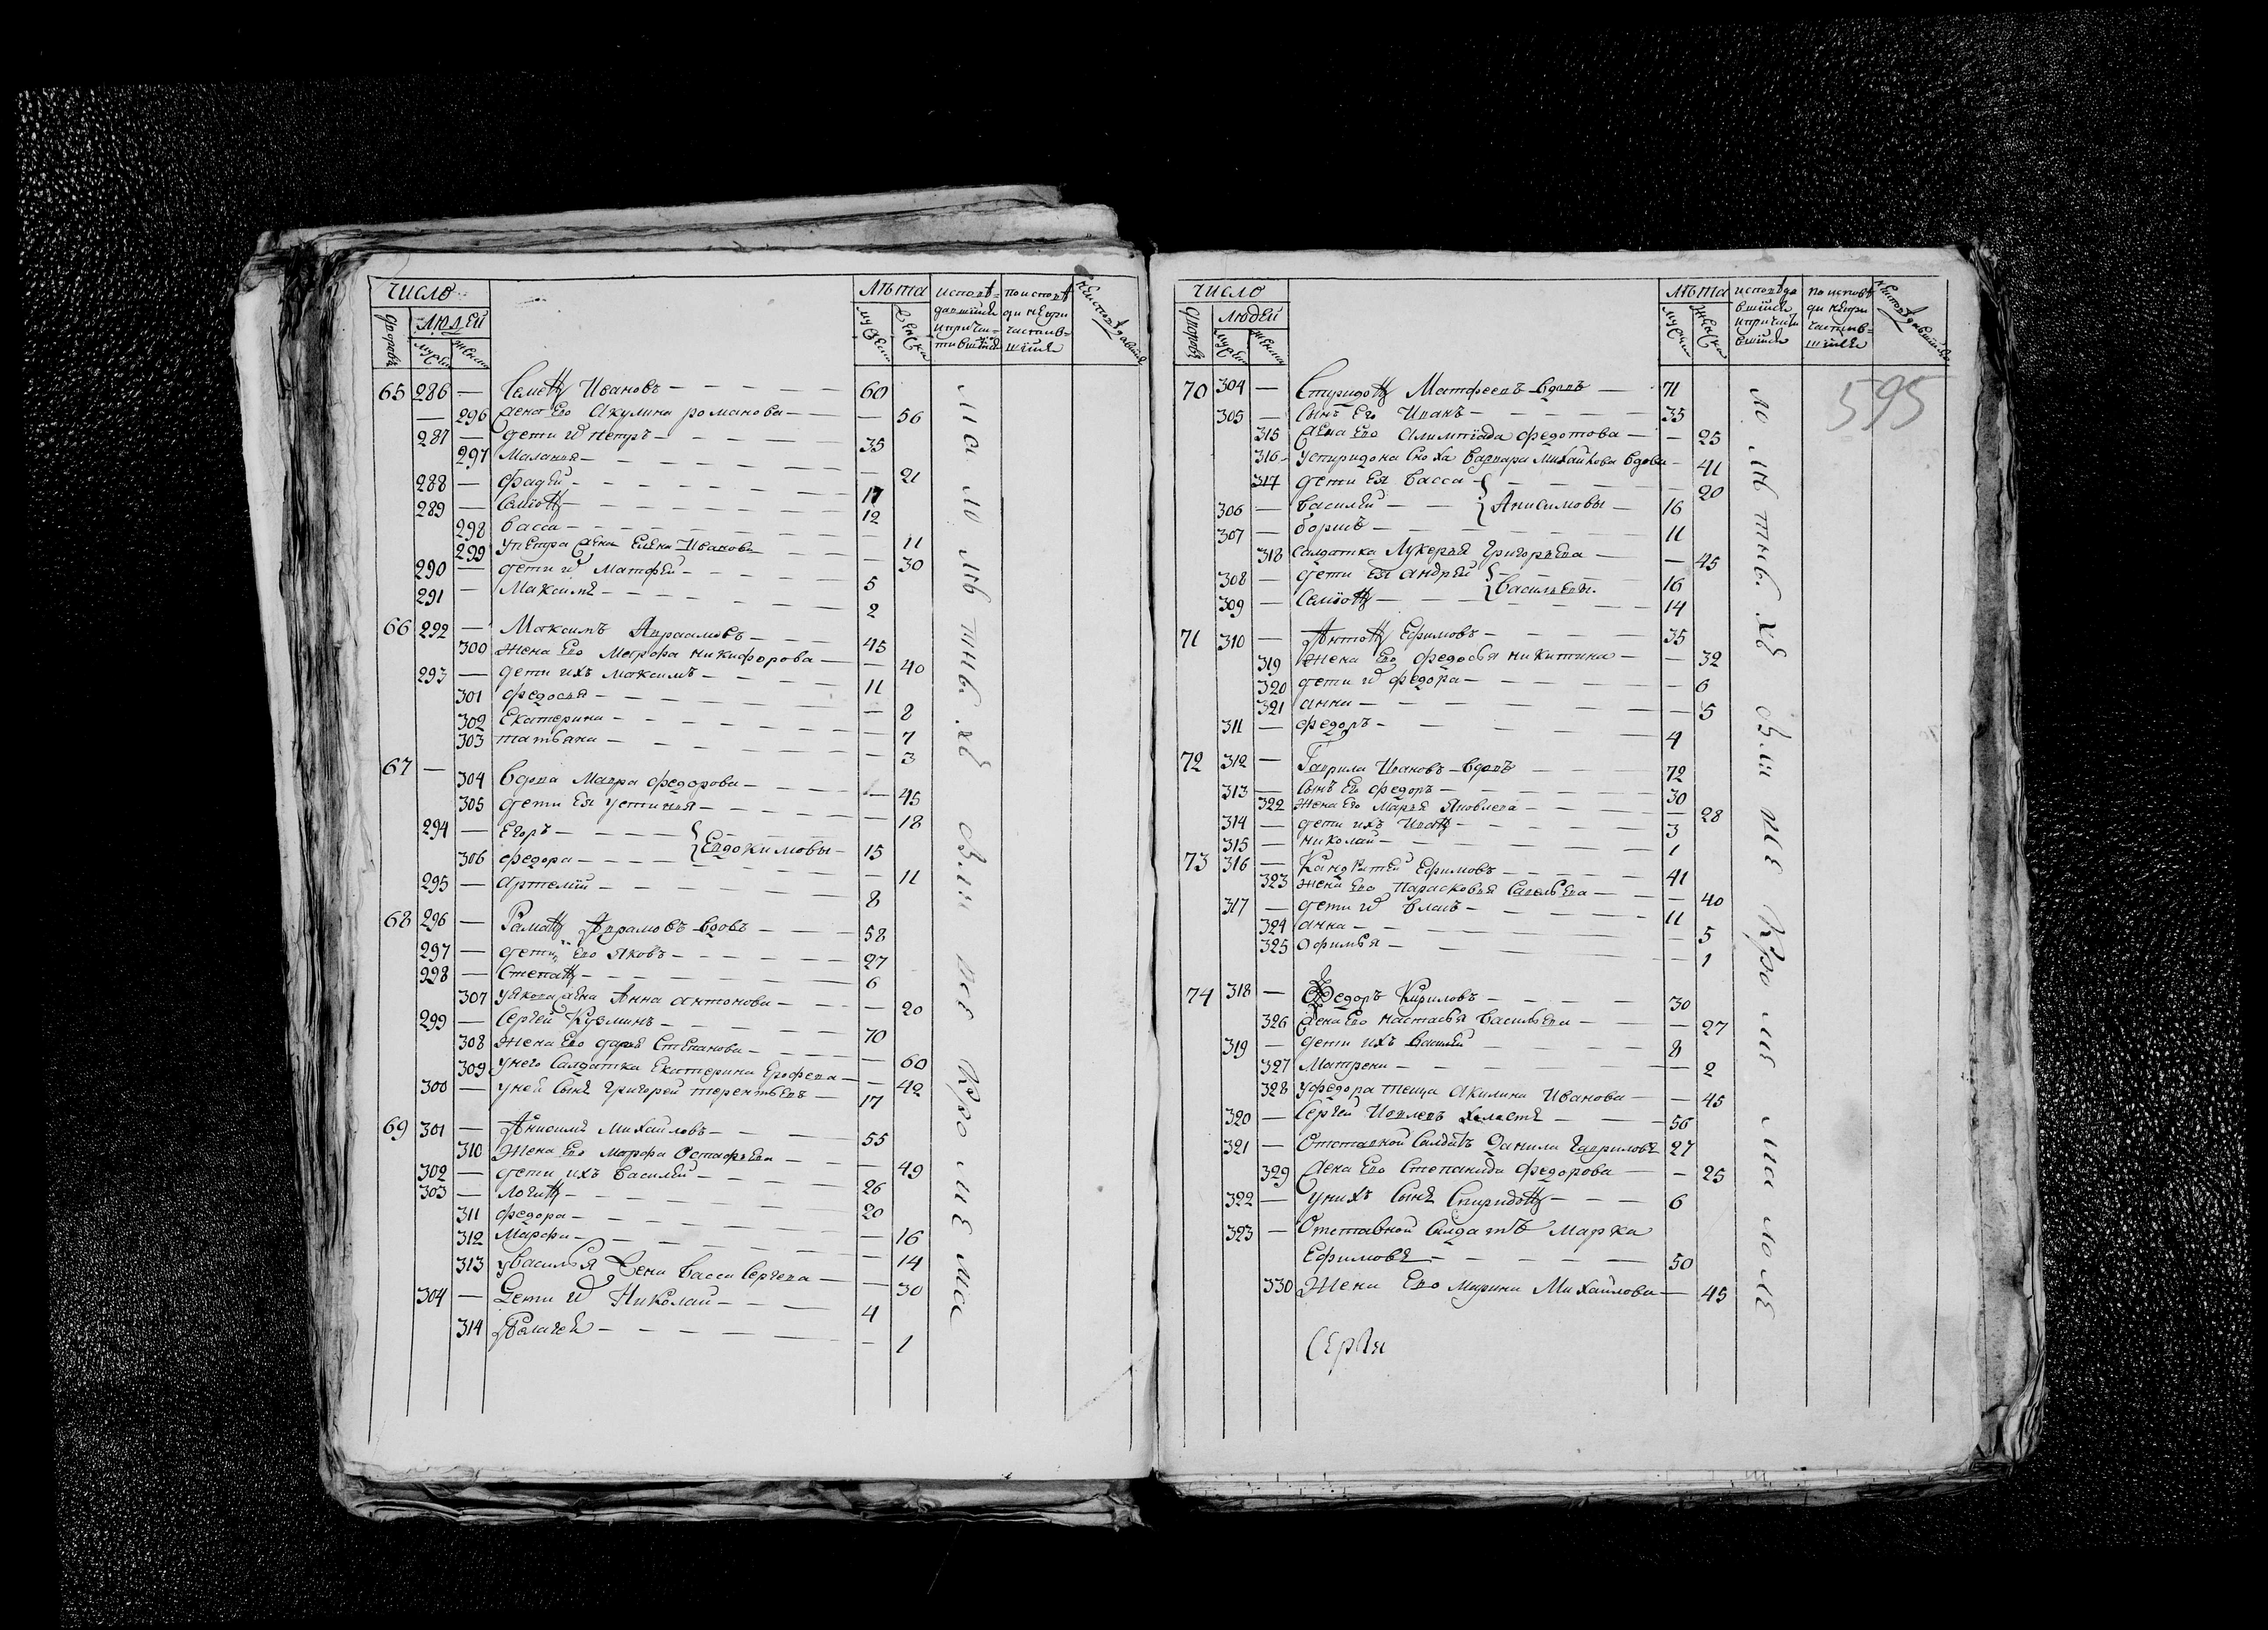 число лѣта исповѣ= по исповѣ неисповѣдавшіяся
дворовъ людей мужеска женска давшіися ди не при
мужеска женска и причас= частив=
тившіися шіися
65 286 — Семенъ Ивановъ — 60
— 296 жена Ево Акулина романова — — 56
287 — дети их петръ — 35
297 Маланья — — 21
288 — фадей — 17
289 — Семионъ — 12
298 васса — — 11
299 упетра жена Елена Иванова — 30
290 — дети их Матфей — 5
291 — Максимъ — 2
66 292 — Максимъ Авраамовъ — 45
300 жена Ево Марфа никифорова — — 40
293 — дети ихъ максимъ — 11
301 федосья — — 8
302 Екатерина — — 7
303 татьяна — — 3
67 — 304 вдова Мавра федорова — — 45
305 дети Ея устинья — — 18
294 — Егоръ — Евдокимовы — 15
306 федора — — 11
295 — Артемий — 8
68 296 — Раманъ Аврамовъ вдовъ — 58
297 — дети Ево яковъ — 27
298 — Степанъ — 6
307 уякова жена Анна антонова — — 20
299 — Сергей Кузминъ — 70
308 жена Ево дарья Степанова — — 60
309 унего Салдатка Екатерина Ерофеева — — 42
300 — уней Сынъ Григорей терентьевъ — 17
69 301 — Анисимъ Михайловъ — 55
310 Жена Ево Марфа Остафьева — — 49
302 — дети ихъ Василей — 26
303 — логинъ — 20
311 федора — — 16
312 Марфа — — 14
313 увасилья жена васса Сергеева — — 30
304 — Дети их Николай — 4
314 Пелагея — — 1
число лѣта исповѣда по исповѣ неисповѣдавшіися
дворовъ людей мужеска женска вшіися ди не при
мужеска женска и причасти частив=
вшіися шіися
595
70 304 — Спиридонъ Матфеевъ вдовъ — 71
305 — Сынъ Ево Иванъ — 35
315 жена Ево Алимпіада федотова — — 25
316 успиридона сноха варвара михайлова вдова — 41
317 дети Ея васса — 20
306 — василей — Анисимовы — 16
307 — борисъ — 11
318 салдатка Лукерья Григорьева — — 45
308 — дети Ея андрей — Васильевы. 16
309 — Семионъ — 14
71 310 — Антонъ Ефимовъ — 35
319 жена Ево федосья никитина — — 32
320 дети их федора — — 6
321 анна — — 5
311 — федоръ — 4
72 312 — Гаврила Ивановъ вдовъ — 72
313 — Сынъ Ево федоръ — 30
322 жена Ево Марья Яковлева — — 28
314 — дети ихъ Иванъ — 3
315 — николай — 1
73 316 — Кандратей Ефимовъ — 41
323 жена Ево Парасковья Савельева — — 40
317 — дети их власъ — 11
324 анна — — 5
325 Офимья — — 1
74 318 — Федоръ Кириловъ — 30
326 жена Ево настасья васильева — — 27
319 — дети ихъ василей — 8
327 Матрена — — 2
328 уфедора теща Акилина Иванова — — 45
320 — Сергей Иевлевъ холостъ — 56
321 — Отставной Салдатъ Данила Гавриловъ 27
329 жена Ево Степанида федорова — — 25
322 — унихъ Сынъ Спиридонъ — 6
323 — Отставной Салдатъ Марка
Ефимовъ — 50
330 Жена Ево марина Михайлова — — 45